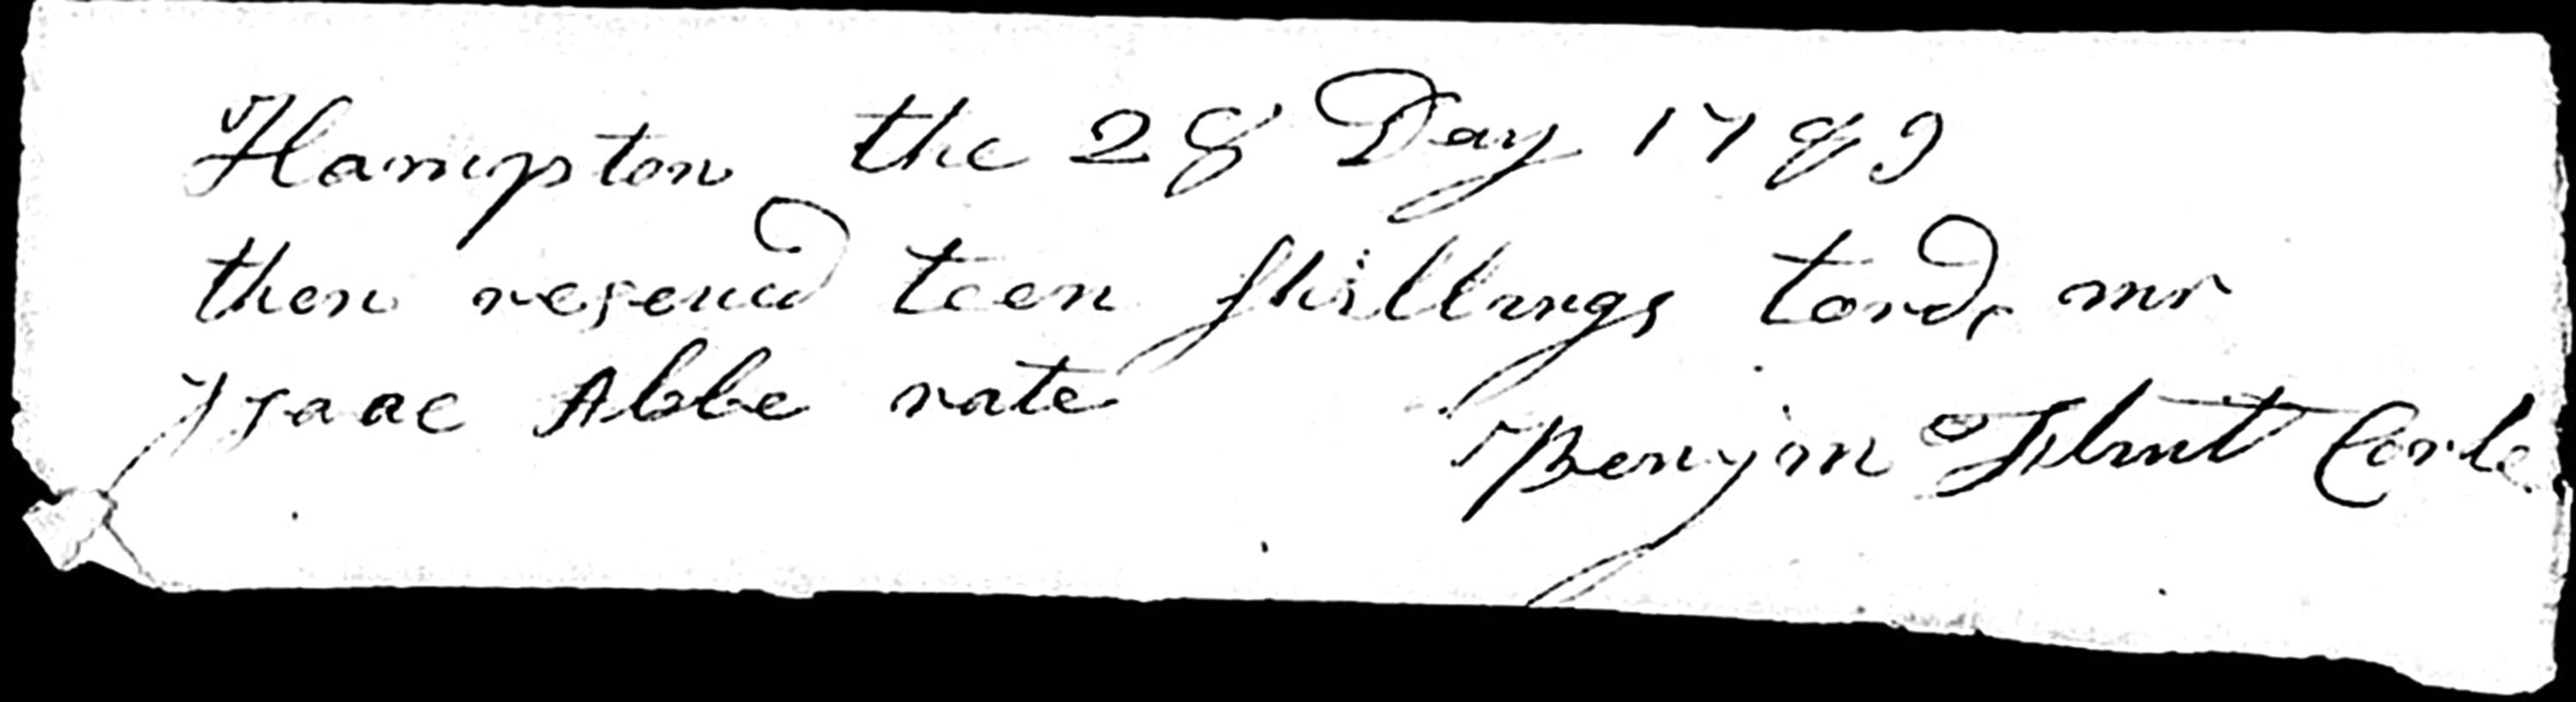 Hampton the 28 Day 1789
then reseued teen shillings tords mr
Isaac Abbe rate
Benjm Flint Corle